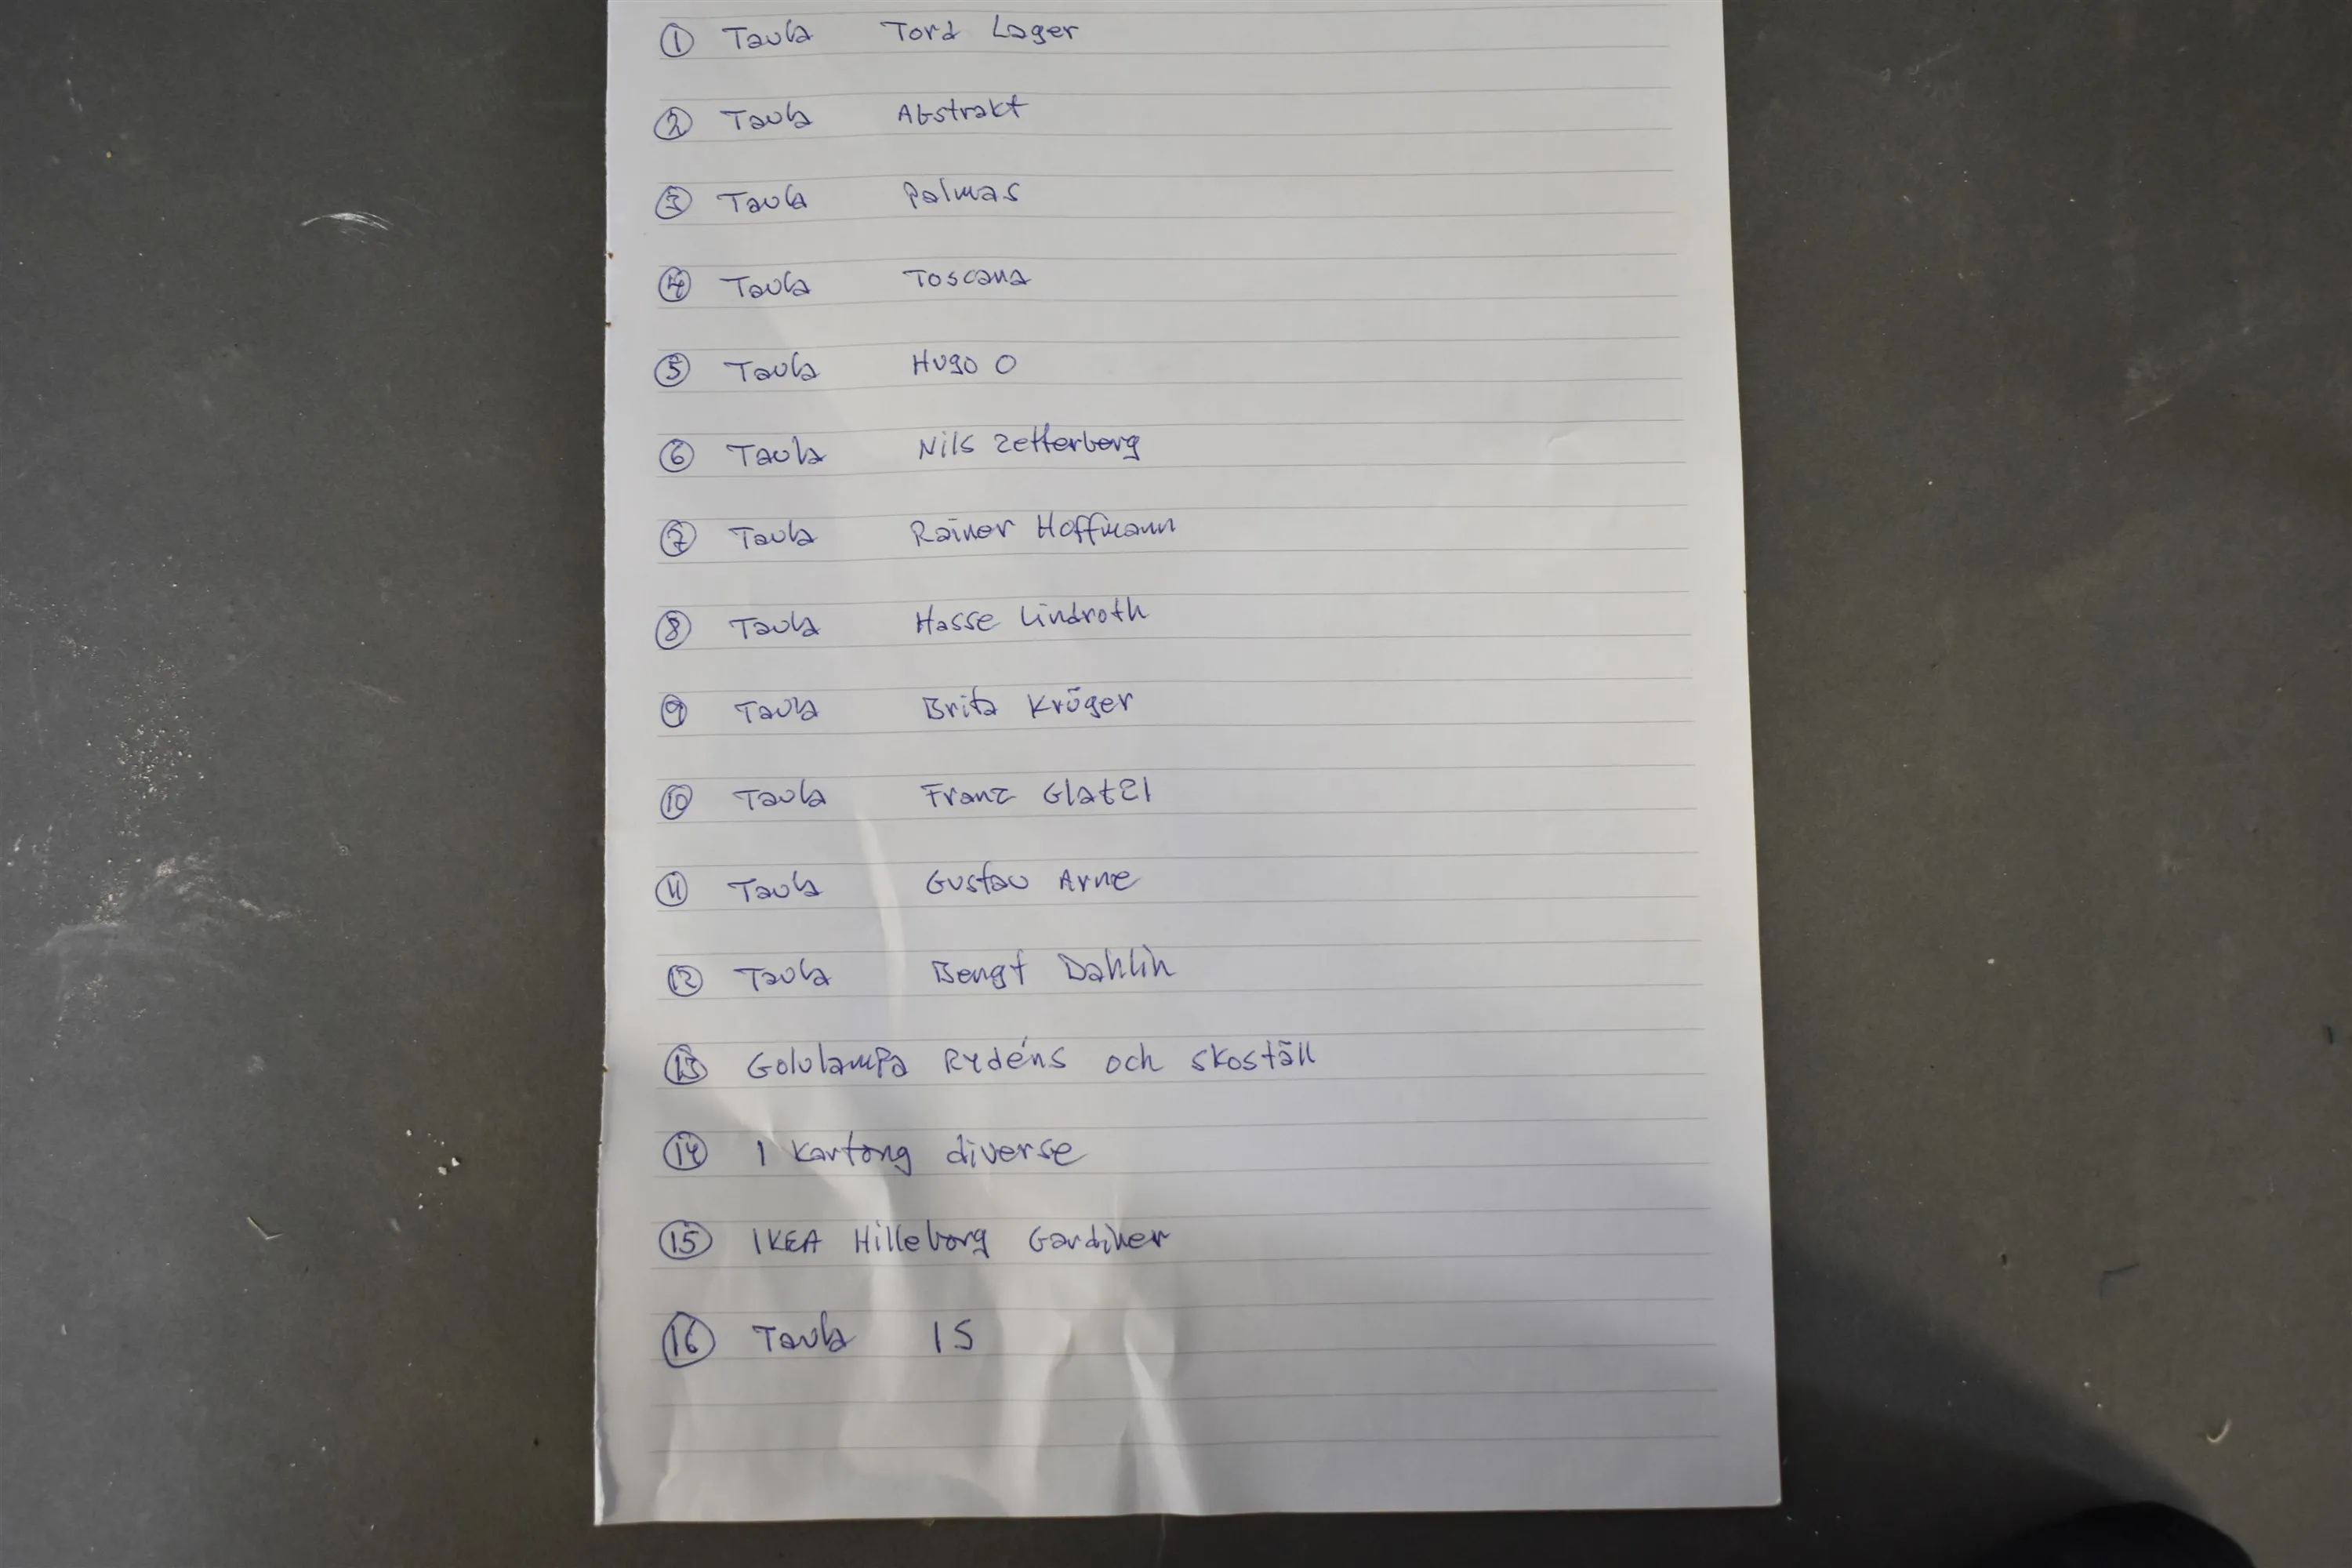 1 Tavla Tord Lager
2 Tavla Abstrakt
3 Tavla Palmas
4 Tavla Toscana
5 Tavla Hugo O
6 Tavla Nils Zetterberg
7 Tavla Rainer Hoffmann
8 Tavla Hasse Lindroth
9 Tavla Brita Kröger
10 Tavla Franz Glatzl
11 Tavla Gustav Arne
12 Tavla Bengt Dahlin
13 Golvlampa Rydéns och skoställ
14 1 Kartong diverse
15 IKEA Hilleborg Gardiner
16 Tavla IS